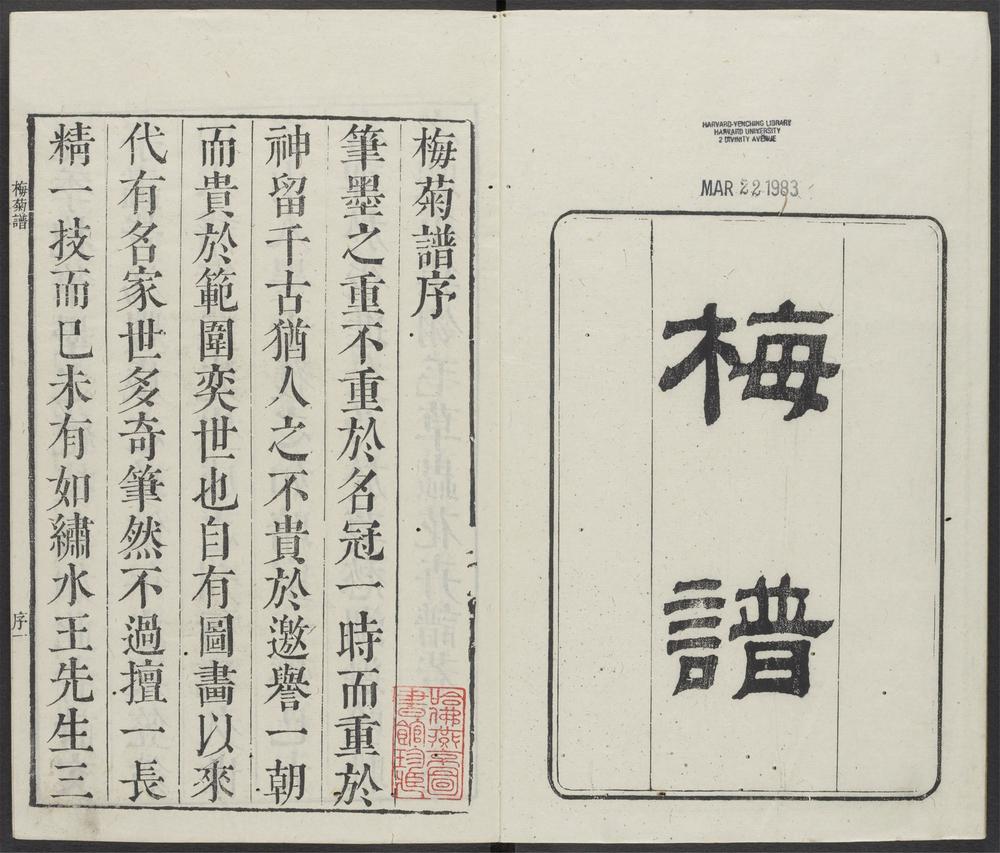 HARVARD-YENCHING LIBRARY
HARVARD UNIVERSITY
2 DIVINITY AVENUE
MAR 22 1983
梅譜
梅菊譜序
筆墨之重不重於名冠一時而重於
神留千古猶人之不貴於邀譽一朝
而貴於範圍奕世也自有圖畵以來
代有名家世多奇筆然不過擅一長
精一技而已未有如繡水王先生三
哈佛燕京圖
書館珍藏
梅菊譜
序一